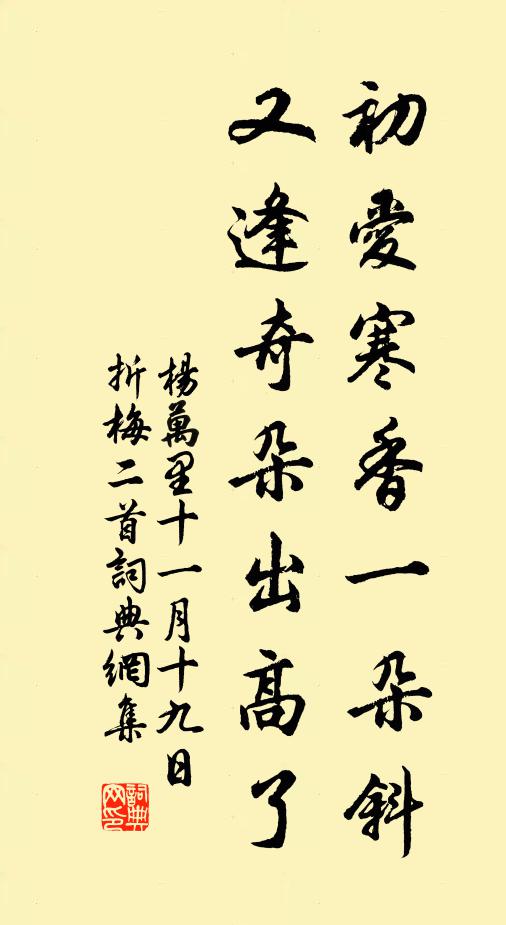 初愛寒香一朵斜
又逢奇朵出高了
楊萬里十一月十九日
折梅二首詞典網集
詞典
網印